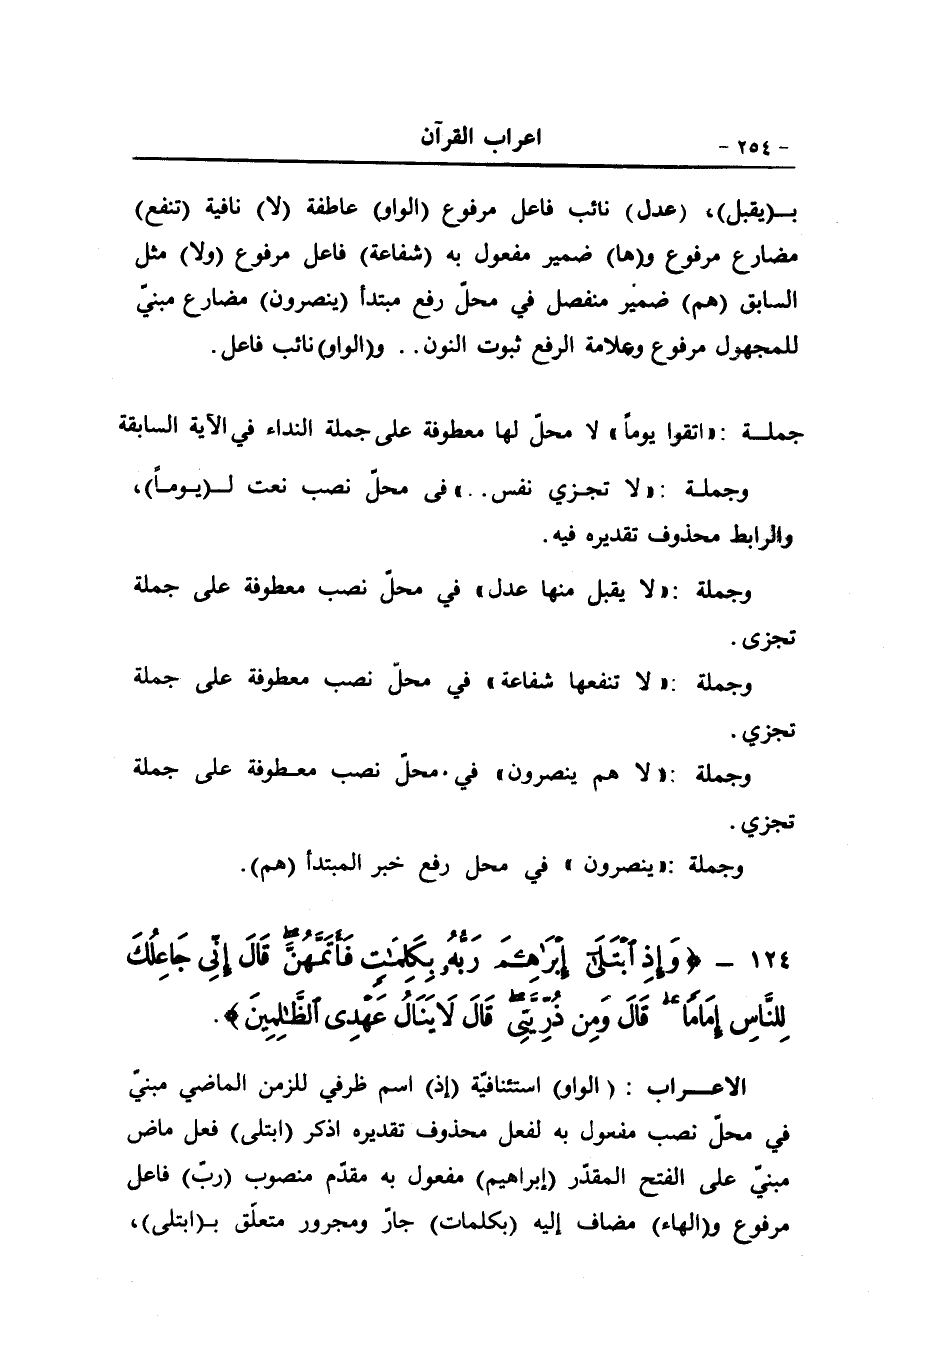 - ٢٥٤ - اعراب القرآن
بـ(يقبل)، (عدل) نائب فاعل مرفوع (الواو) عاطفة (لا) نافية (تنفع)
مضارع مرفوع و(ها) ضمير مفعول به (شفاعة) فاعل مرفوع (ولا) مثل
السابق (هم) ضمير منفصل في محلّ رفع مبتدأ (ينصرون) مضارع مبنيّ
للمجهول مرفوع وعلامة الرفع ثبوت النون.. و(الواو) نائب فاعل.
جملـــة :«اتقوا يوماً» لا محلّ لها معطوفة على جملة النداء في الآية السابقة
وجملـة :«لا تجـزي نفس..» فى محلّ نصب نعت لـ(يـومـاً)،
والرابط محذوف تقديره فيه.
وجملة :«لا يقبل منها عدل» في محلّ نصب معطوفة على جملة
تجزى.
وجملة :«لا تنفعها شفاعة» في محلّ نصب معطوفة على جملة
تجزي.
وجملة :«لا هم ينصرون» في محلّ نصب معـطوفة على جملة
تجزي.
وجملة :«ينصرون » في محل رفع خبر المبتدأ (هم).
١٢٤ - ﴿ وَإِذِ ٱبْتَلَىٰٓ إِبْرَٰهِـۧمَ رَبُّهُۥ بِكَلِمَٰتٍ فَأَتَمَّهُنَّۖ قَالَ إِنِّى جَاعِلُكَ
لِلنَّاسِ إِمَامًاۖ قَالَ وَمِن ذُرِّيَّتِىۖ قَالَ لَا يَنَالُ عَهْدِى ٱلظَّٰلِمِينَ ﴾.
الاعـــراب : ( الواو) استئنافيّة (إذ) اسم ظرفي للزمن الماضي مبنيّ
في محلّ نصب مفعول به لفعل محذوف تقديره اذكر (ابتلى) فعل ماض
مبنيّ على الفتح المقدّر (إبراهيم) مفعول به مقدّم منصوب (ربّ) فاعل
مرفوع و(الهاء) مضاف إليه (بكلمات) جارّ ومجرور متعلّق بـ(ابتلى)،